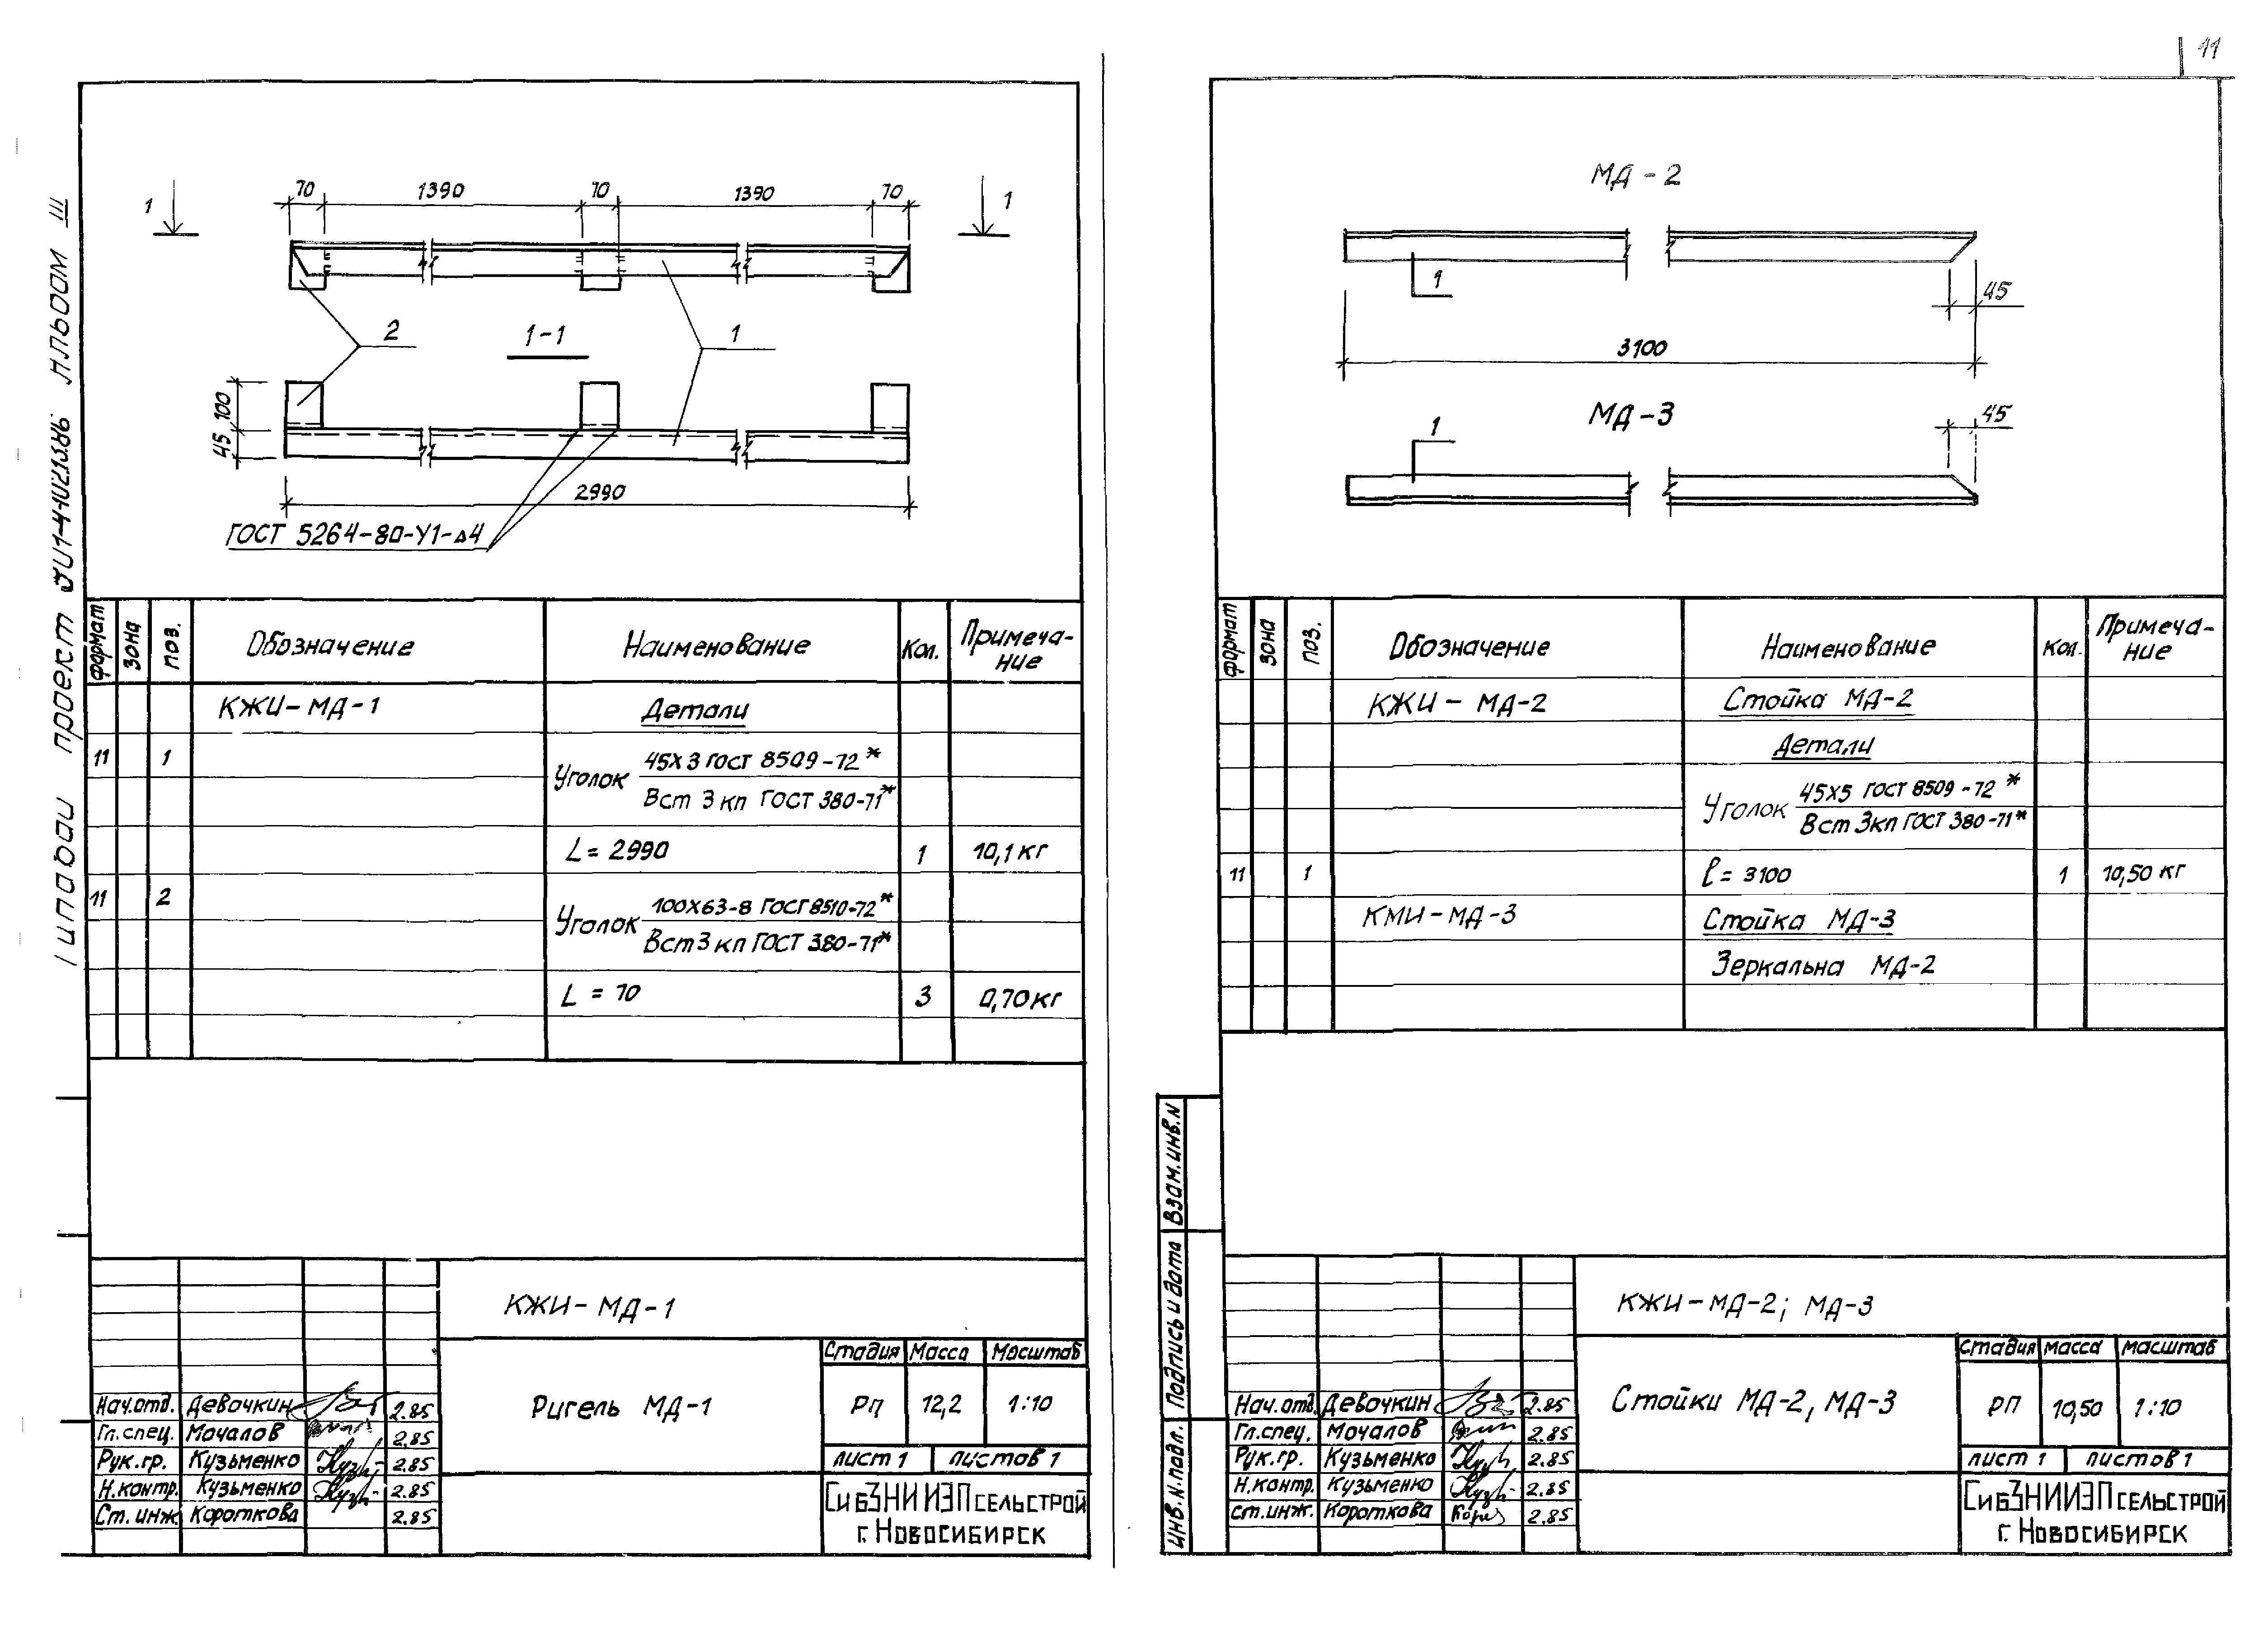 11
Альбом III
Типовой проект
70 1390 70 1390 70
1 1
2 1-1 1
100
45
2990
ГОСТ 5264-80-У1-Δ4
формат зона поз. Обозначение Наименование Кол. Примеча-
ние
КЖИ-МД-1 Детали
11 1 Уголок 45х3 ГОСТ 8509-72*
Вст 3 кп ГОСТ 380-71*
L = 2990 1 10,1 кг
11 2 Уголок 100х63-8 ГОСТ 8510-72*
Вст 3 кп ГОСТ 380-71*
L = 70 3 0,70 кг
КЖИ-МД-1
Ригель МД-1
Стадия Масса Масштаб
РП 12,2 1:10
лист 1 листов 1
Нач.отд. Девочкин 2.85
Гл.спец. Мочалов 2.85
Рук.гр. Кузьменко 2.85
Н.контр. Кузьменко 2.85
Ст.инж. Короткова 2.85
СибЗНИИЭПсельстрой
г. Новосибирск
МД-2
1
45
3100
МД-3
1
45
формат зона поз. Обозначение Наименование Кол. Примеча-
ние
КЖИ-МД-2 Стойка МД-2
Детали
Уголок 45х5 ГОСТ 8509-72*
Вст 3кп ГОСТ 380-71*
11 1 ℓ = 3100 1 10,50 кг
КМИ-МД-3 Стойка МД-3
Зеркальна МД-2
Взам.инв.N
Подпись и дата
Инв.N.подл.
КЖИ-МД-2; МД-3
Стойки МД-2, МД-3
Стадия Масса Масштаб
РП 10,50 1:10
лист 1 листов 1
Нач.отд. Девочкин 2.85
Гл.спец. Мочалов 2.85
Рук.гр. Кузьменко 2.85
Н.контр. Кузьменко 2.85
Ст.инж. Короткова 2.85
СибЗНИИЭПсельстрой
г. Новосибирск